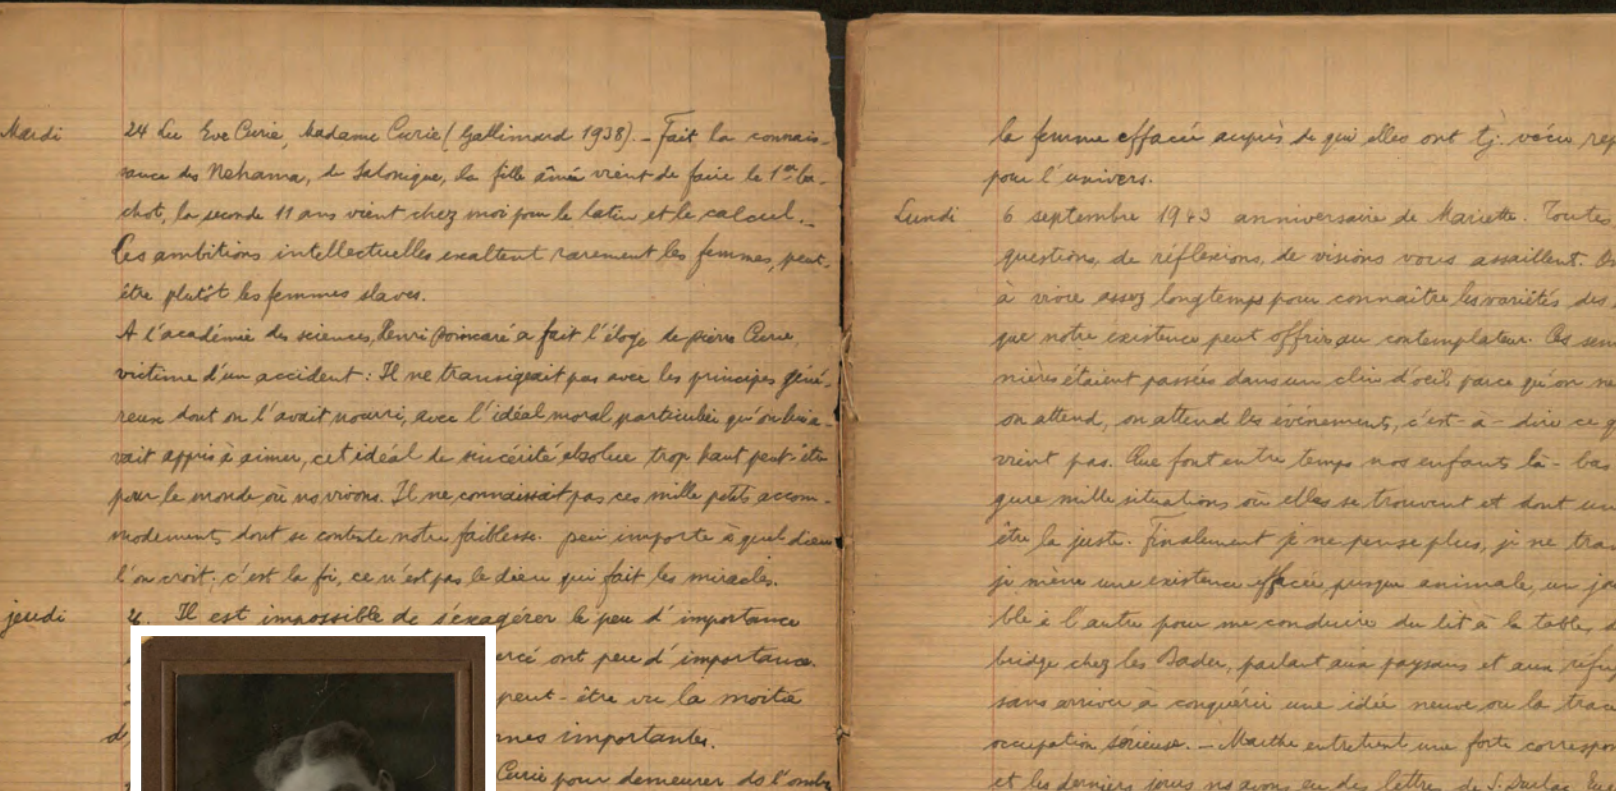 Mardi 24 Lu Eve Curie, Madame Curie (Gallimard 1938). - Fait la connais-
sance des Nehama, de Salonique, la fille aînée vient de faire le 1er ba-
chot, la seconde 11 ans vient chez moi pour le latin et le calcul. -
Ces ambitions intellectuelles exaltent rarement les femmes, peut-
être plutôt les femmes slaves.
A l'académie des sciences, Henri Poincaré a fait l'éloge de Pierre Curie,
victime d'un accident : Il ne transigeait pas avec les principes géné-
reux dont on l'avait nourri, avec l'idéal moral particulier qu'on lui a-
vait appris à aimer, cet idéal de sincérité absolue trop haut peut-être
pour le monde où ns vivons. Il ne connaissait pas ces mille petits accom-
modements dont se contente notre faiblesse. peu importe à quel dieu
l'on croit ; c'est la foi, ce n'est pas le dieu qui fait les miracles.
jeudi Il est impossible de s'exagérer le peu d'importance
ont peu d'importance.
peut-être vu la moitié
importantes.
Curie pour demeurer ds l'ombre
la femme effacée auprès de qui elles ont tj. vécu
pour l'univers.
Lundi 6 septembre 1943 anniversaire de Mariette. Toutes
questions, de réflexions, de visions vous assaillent.
à vivre assez longtemps pour connaître les variétés des
que notre existence peut offrir au contemplateur. Ces
nières étaient passées dans un clin d'oeil parce qu'on ne
on attend, on attend les événements, c'est-à-dire ce
vient pas. Que font entre temps nos enfants là-bas
gure mille situations où elles se trouvent et dont
être la juste. Finalement je ne pense plus, je ne
je mène une existence effacée presque animale, un
ble à l'autre pour me conduire du lit à la table,
bridge chez les Bader, parlant aux paysans et aux
sans arriver à conquérir une idée neuve ou la
occupation sérieuse. - Marthe entretient une forte
et les derniers jours ns avons eu des lettres de S.